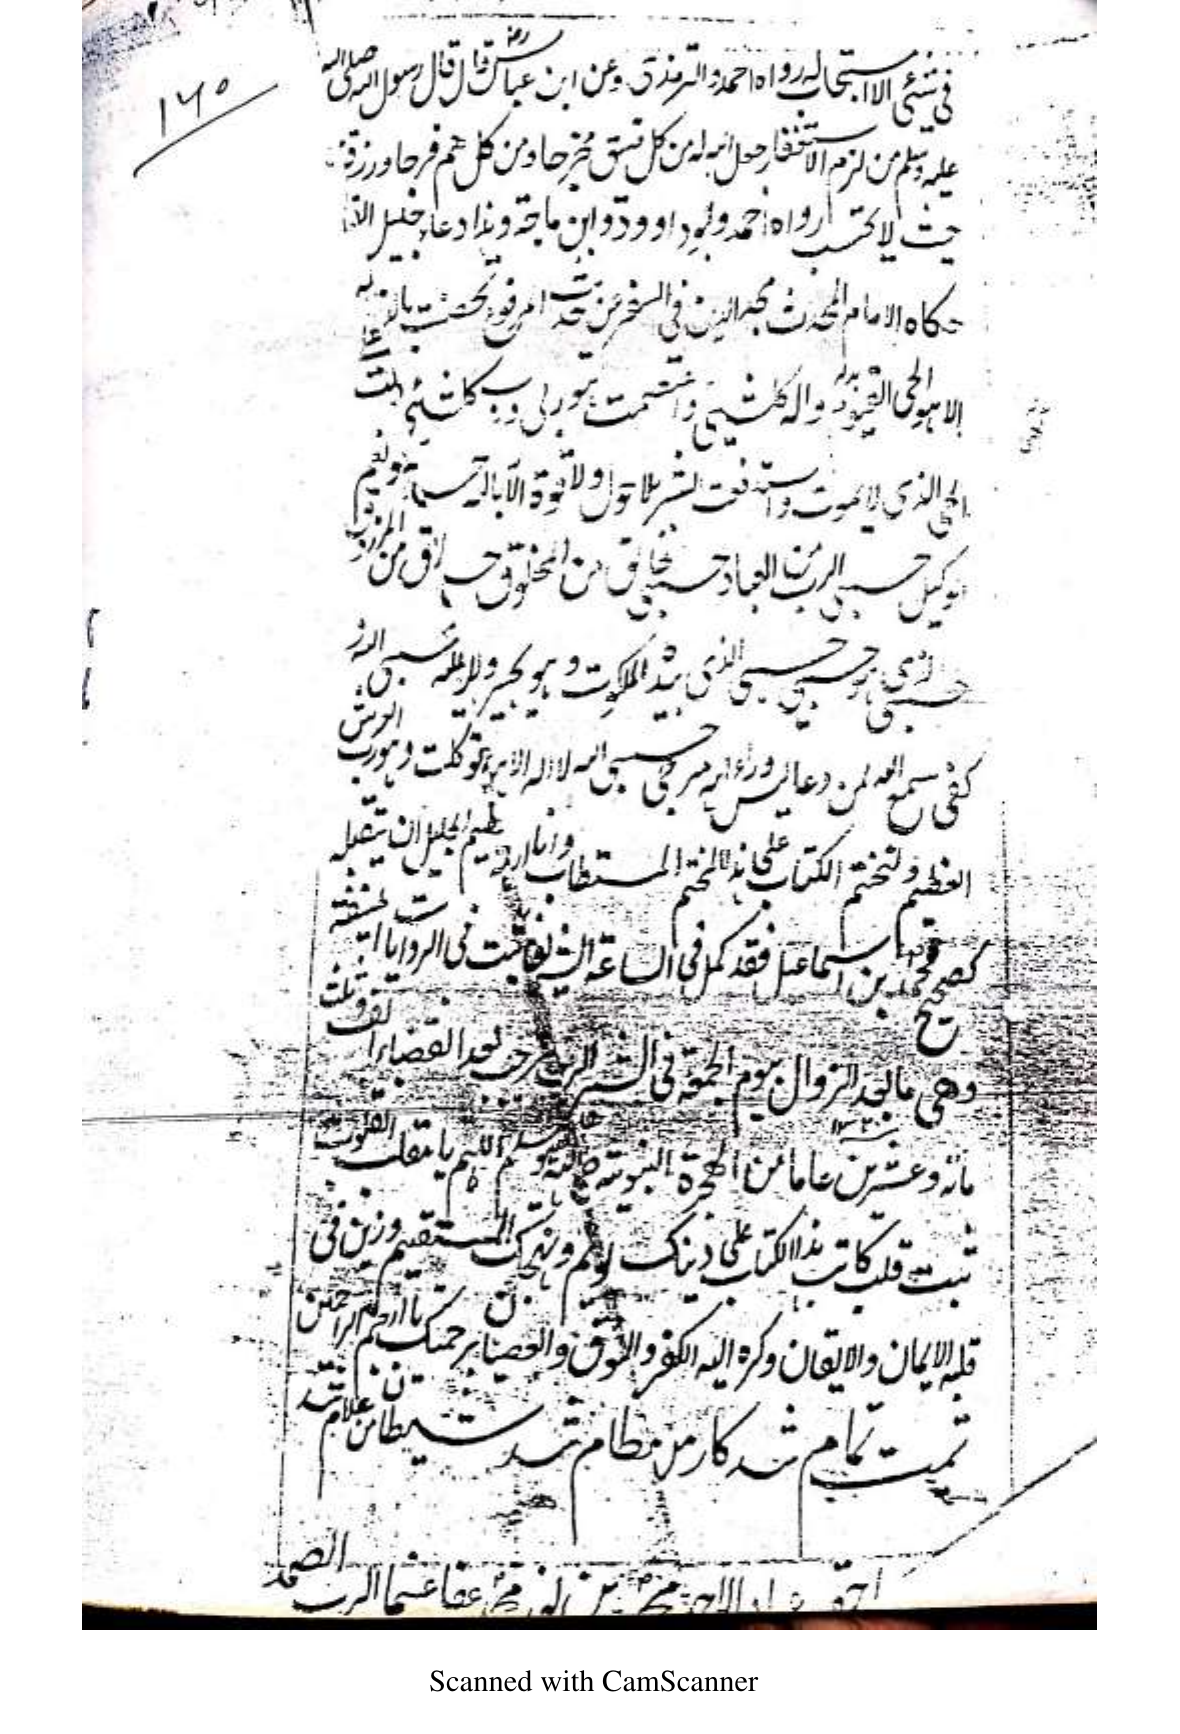 ١٦٠
في شئي الا استجاب له رواه احمد والترمذي وعن ابن عباس رض قال قال رسول الله صلى الله
عليه وسلم من لزم الاستغفار جعل الله له من كل ضيق مخرجا ومن كل هم فرجا ورزقه
حيث لا يحتسب رواه احمد وابو داوود وابن ماجة وهذا دعاء جليل
حكاه الامام المحدث مجد الدين في تحصنت بالذي لا اله
الا هو الحي القيوم واله كلشيئ واعتصمت بهو ربي ورب كلشيئ توكلت على
الحي الذي لا يموت واستدفعت الشر بلا حول ولا قوة الا بالله حسبي الله ونعم
الوكيل حسبي الرب من العباد حسبي الخالق من المخلوق حسبي الرازق من المرزوق
حسبي الذي هو حسبي حسبي الذي بيده الملكوت وهو يجير ولا يجار عليه حسبي الله و
كفى سمع الله لمن دعا ليس وراء الله مرمى حسبي الله لا اله الا هو عليه توكلت وهو رب العرش
العظيم ولنختم الكتاب على هذا المختم المستطاب وانا ارجو العظيم الجليل ان يتقبله
كصحيح محمد بن اسماعيل فقد كمل في الساعة الشريفة في الروايات
وهي ما بعد الزوال يوم الجمعة في الشهر رجب بعد انقضاء الف وثلث
مائة وعشرين عاما من الهجرة النبوية صلى الله عليه وسلم اللهم يا مقلب القلوب
ثبت قلب كاتب هذا الكتاب على دينك القويم ونهجك المستقيم وزين في
قلبه الايمان والايقان وكره اليه الكفر والفسوق والعصيان برحمتك يا ارحم الراحمين
تمت تمام شد كار من نظام شد شيطان غلام شد
عباد الاحد محمد بن نور محمد عفا عنهما الرب الصمد
Scanned with CamScanner